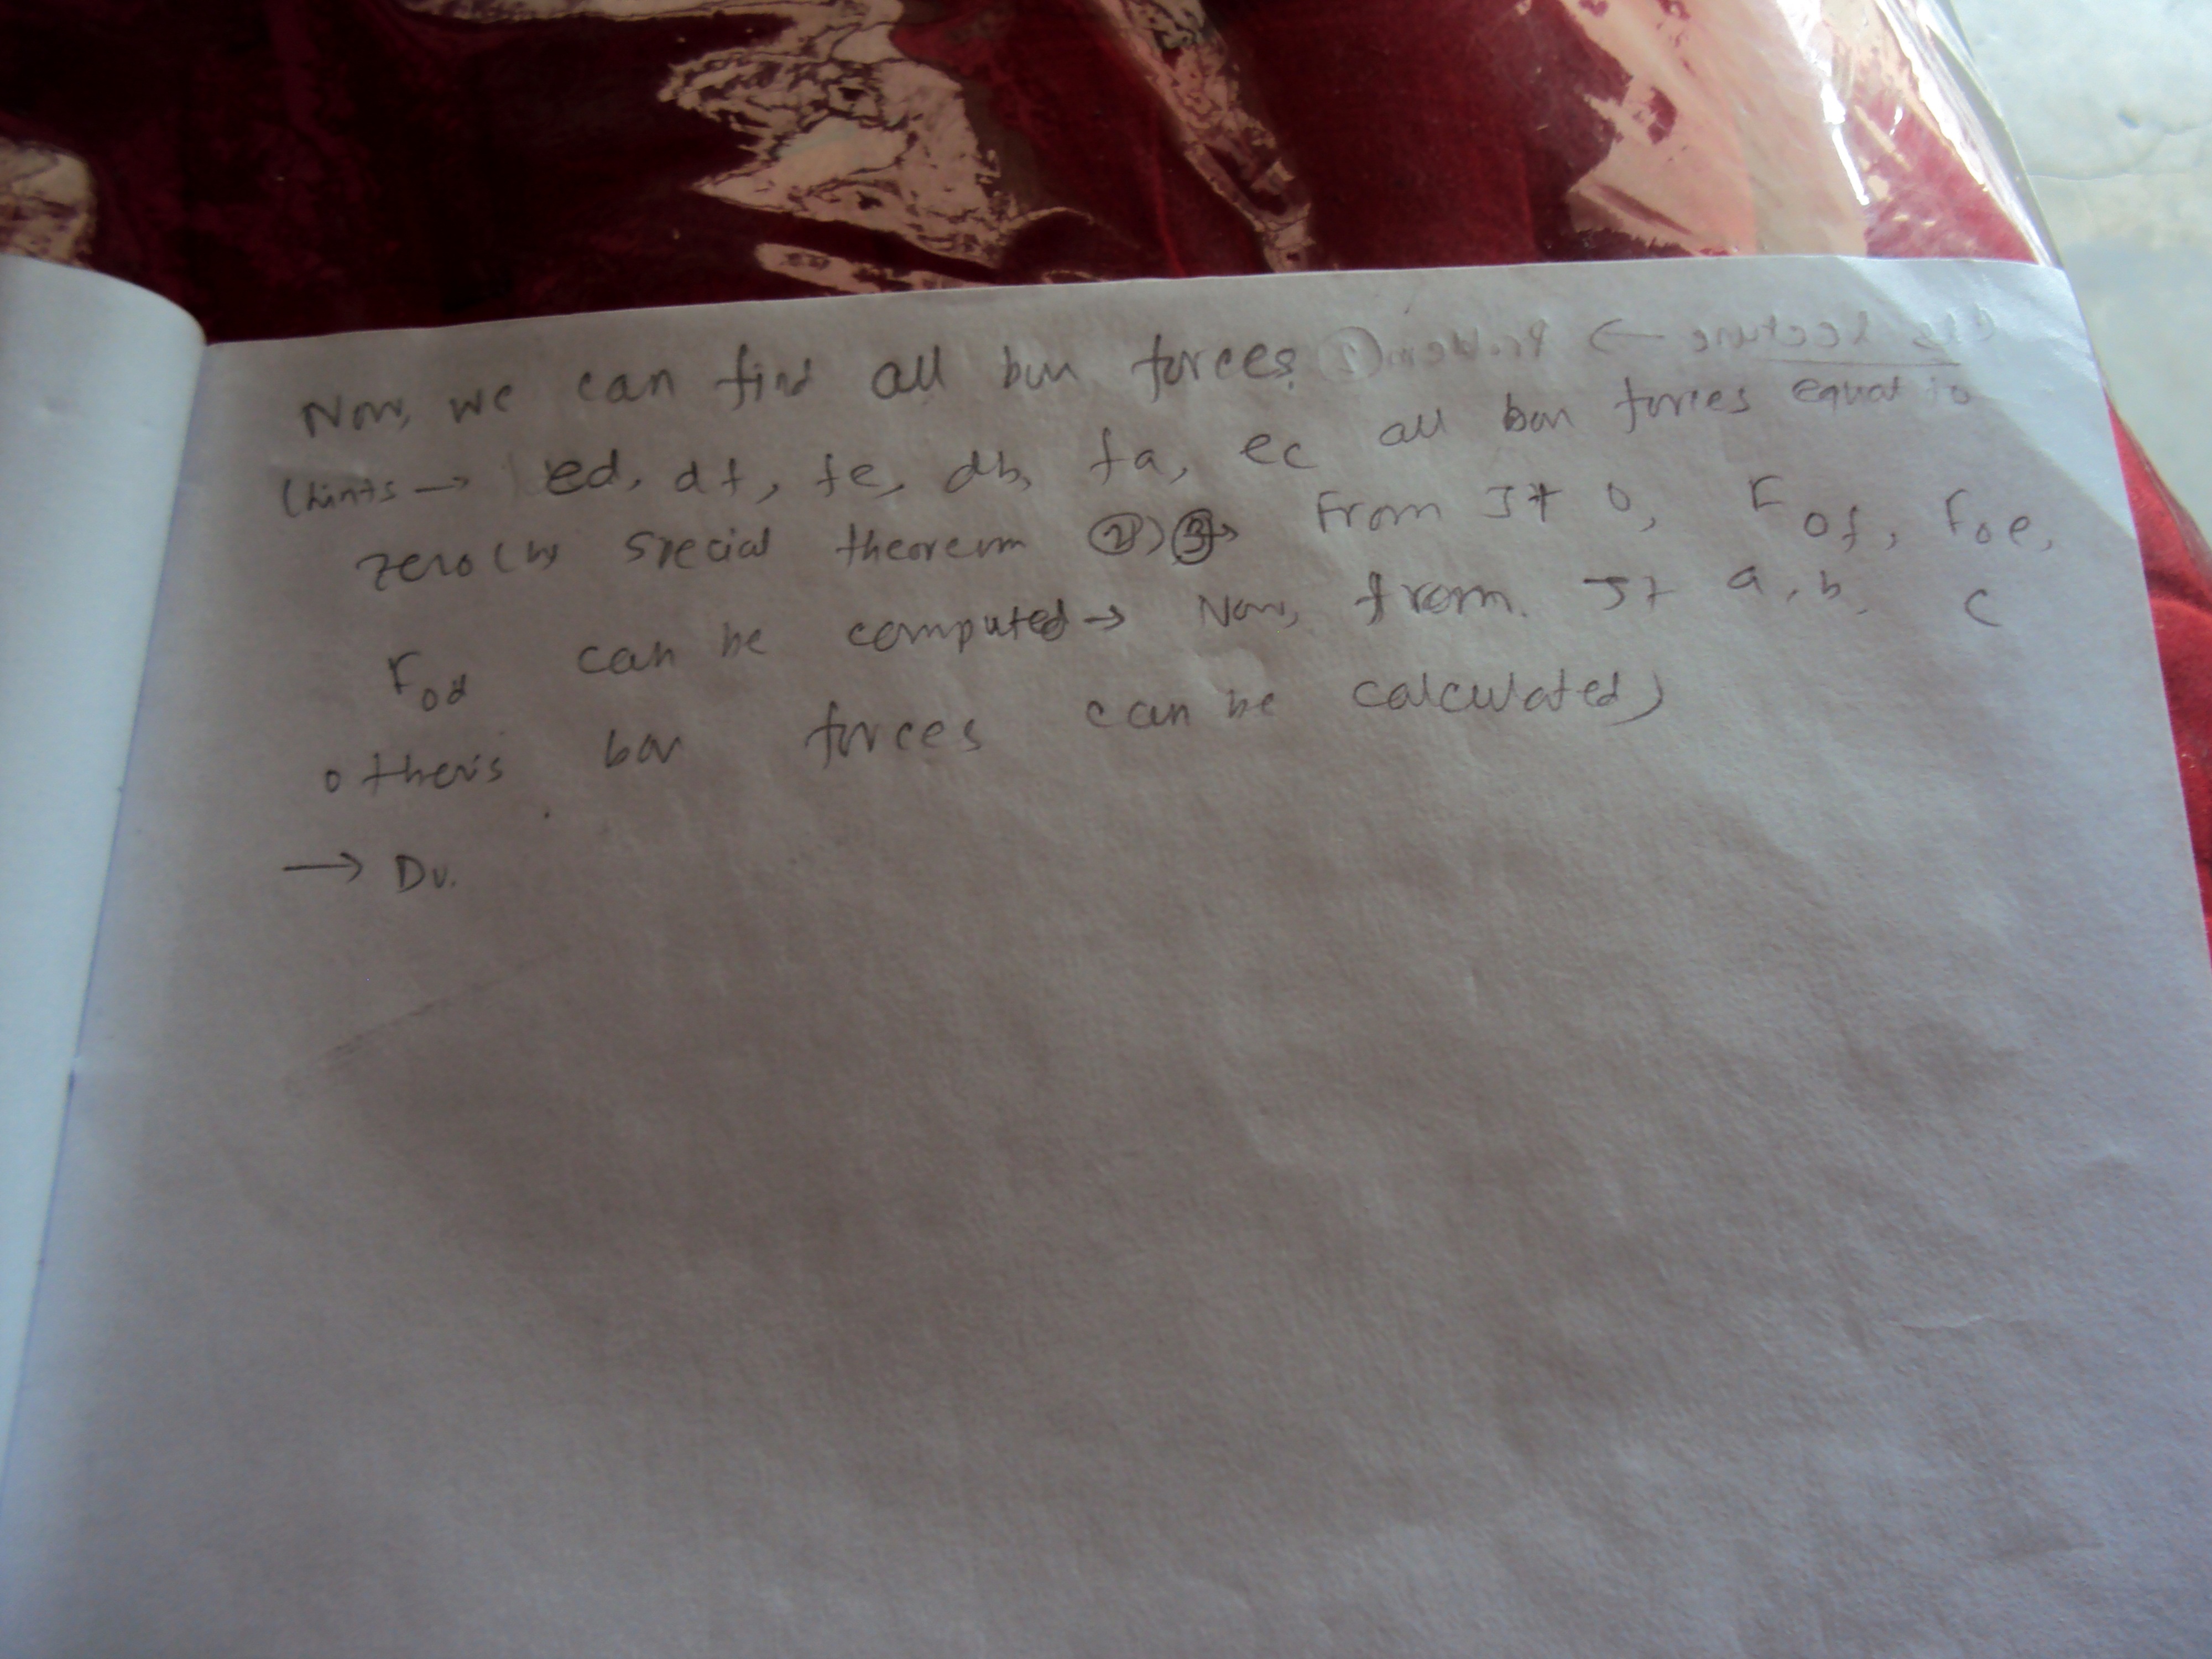 Now, we can find all bar forces.
(hints → ed, df, fe, db, fa, ec all bar forces equal to
zero (by special theorem ② > ③ → From JT o, Fof, Foe,
Fod can be computed → Now, from JT a, b, c
others bar forces can be calculated)
→ Du.